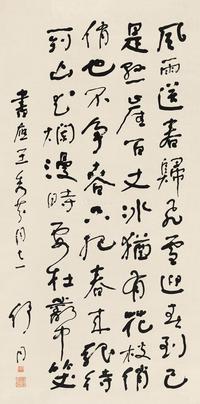 風雨送春歸飛雪迎春到已
是懸崖百丈冰猶有花枝俏
俏也不争春只把春來報待
到山花爛漫時她在叢中笑
書應王
舒同